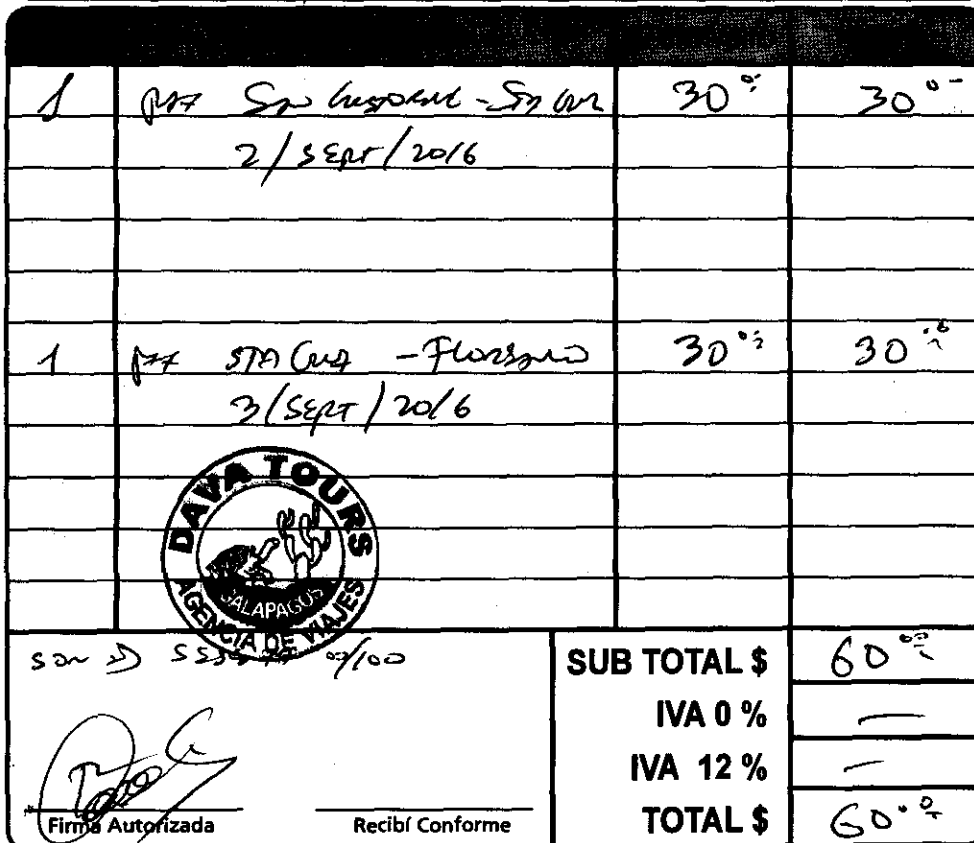 1 pax San Cristobal - Sta Cruz 30.00 30.00
2/SEPT/2016
1 pax STA Cruz - Floreana 30.00 30.00
3/SEPT/2016
DAVA TOURS
GALAPAGOS
AGENCIA DE VIAJES
SON 00/100
SUB TOTAL $ 60.00
IVA 0 % —
IVA 12 % —
TOTAL $ 60.00
Firma Autorizada Recibí Conforme